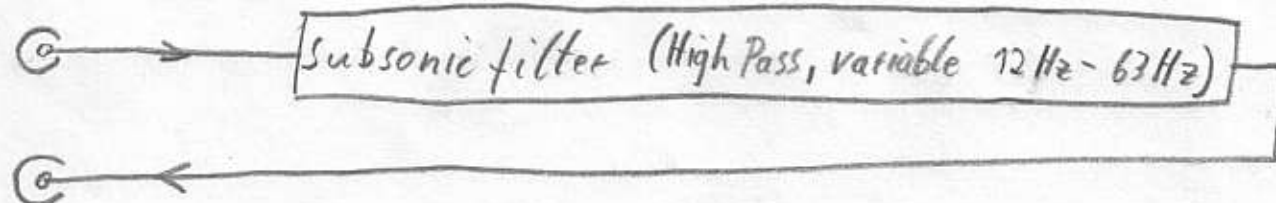 Subsonic filter (High Pass, variable 12Hz - 63Hz)